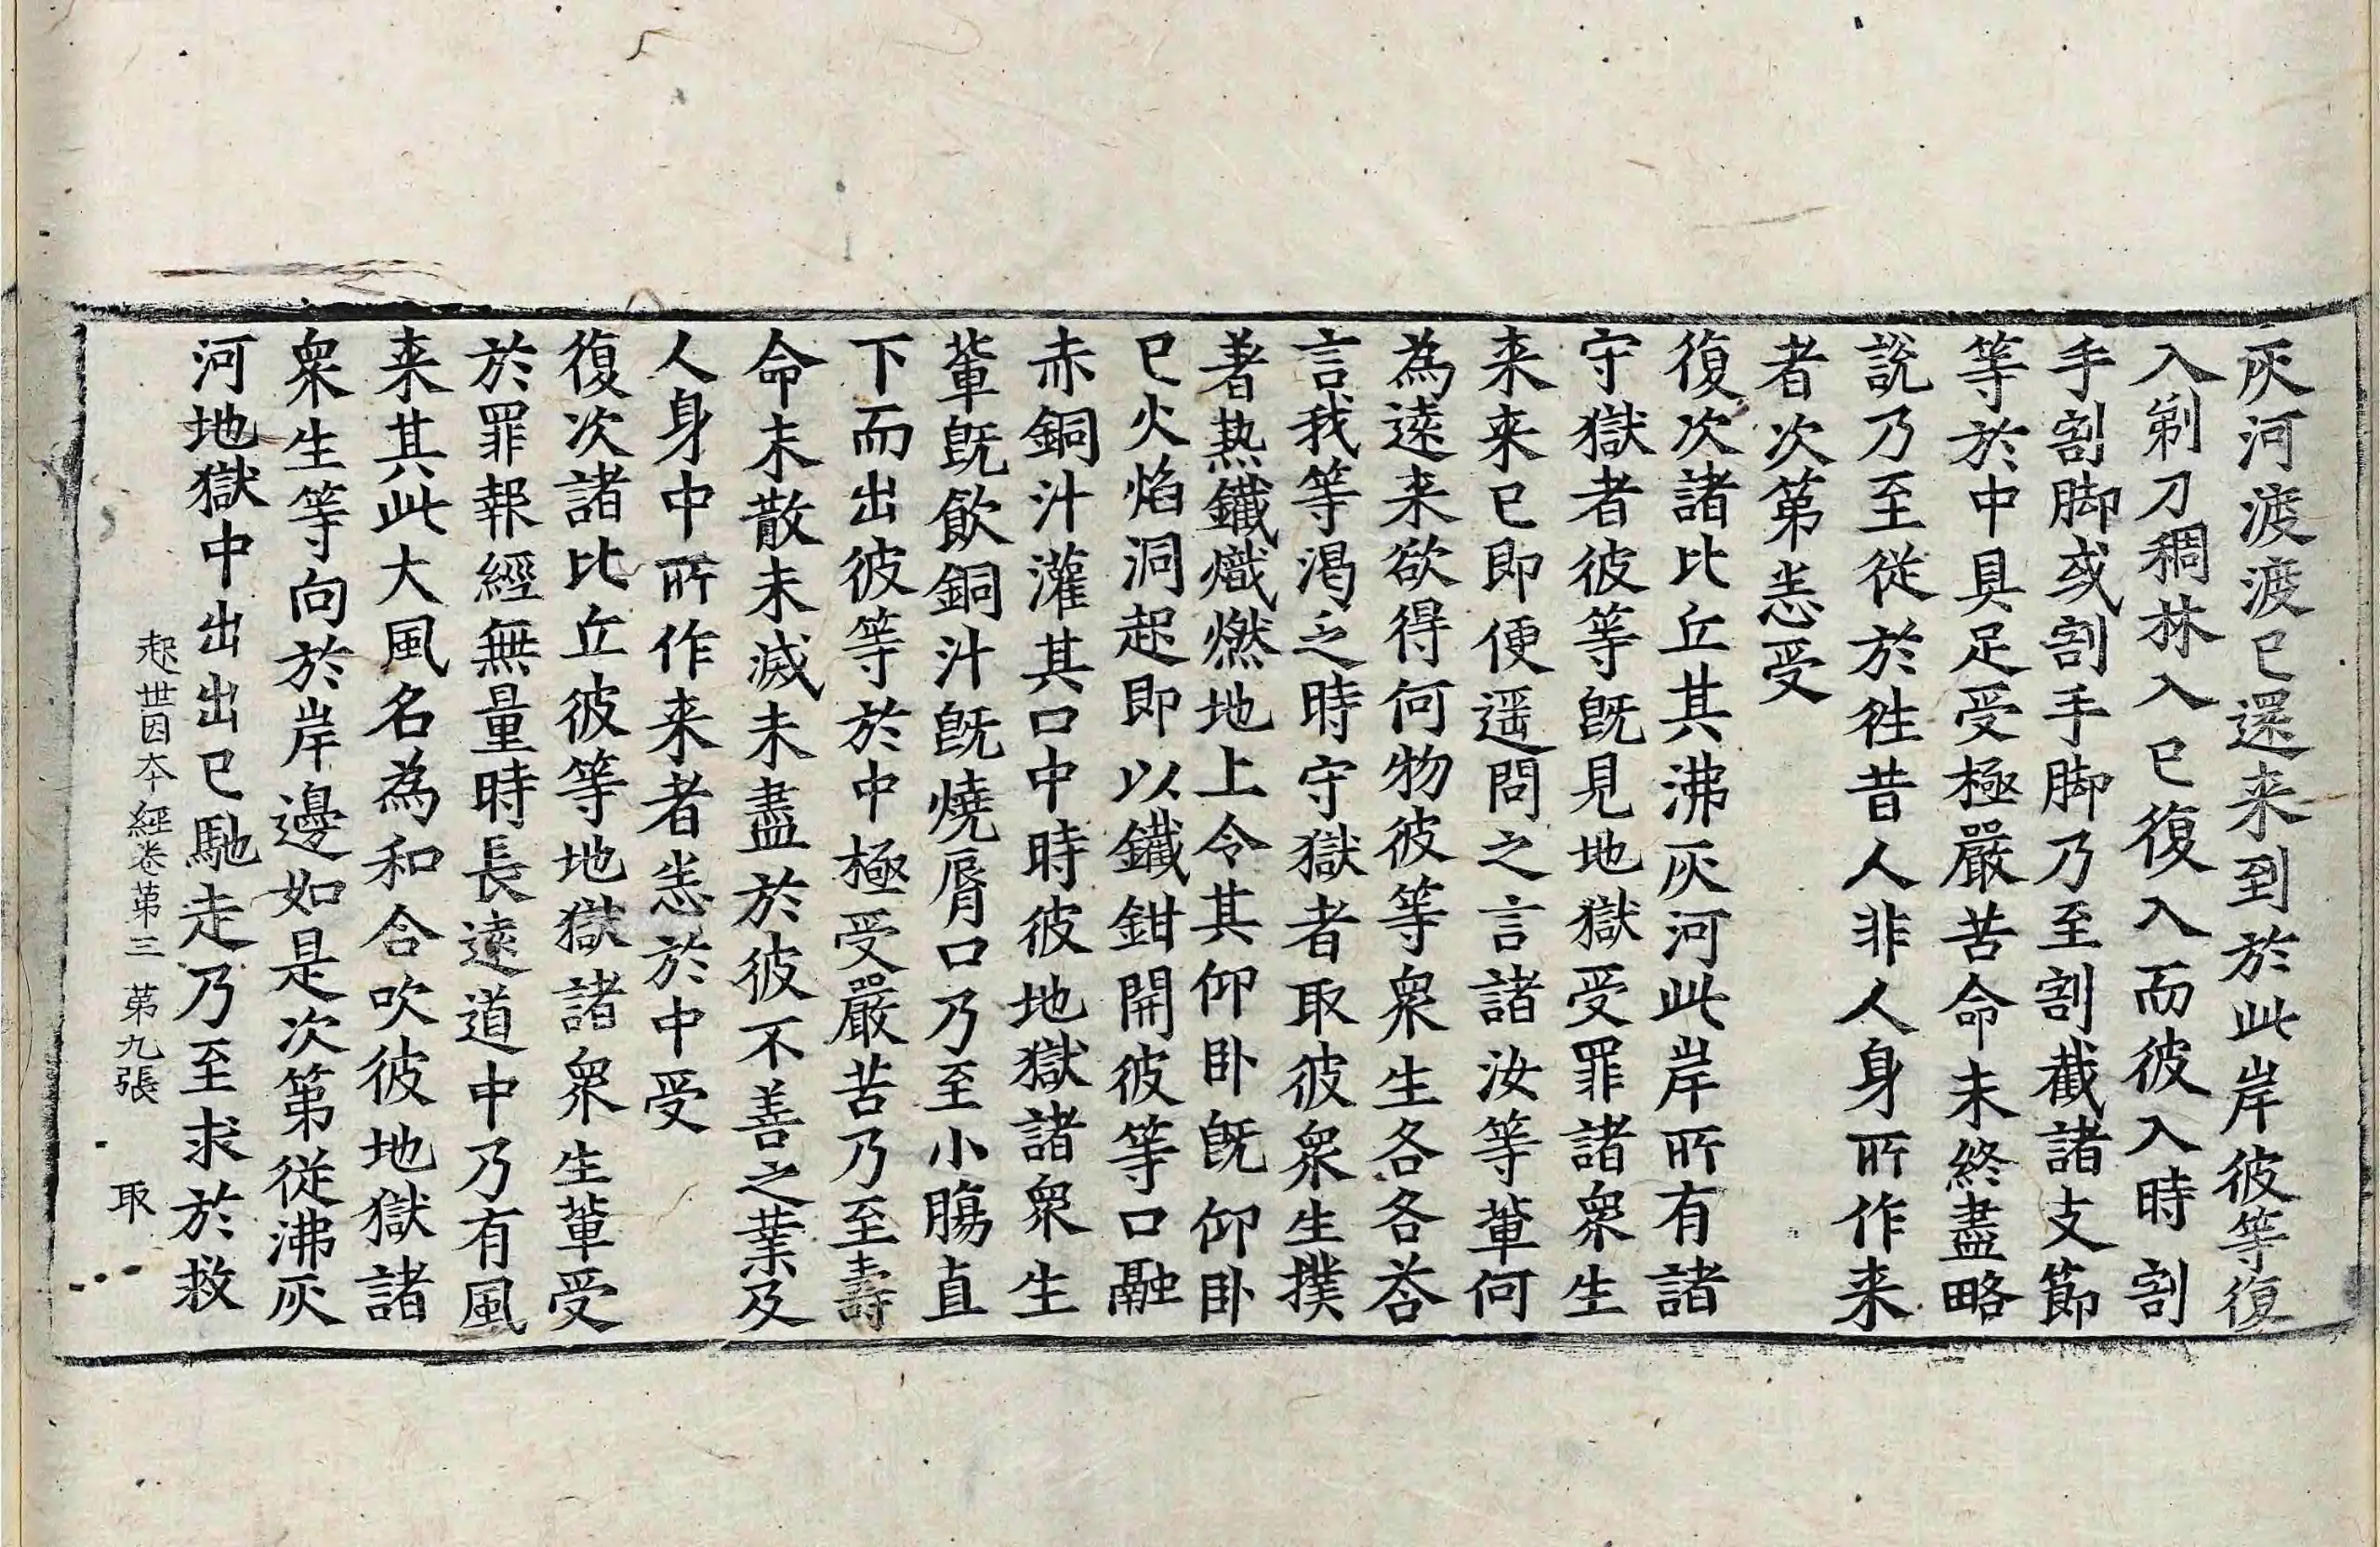 灰河渡渡已還来到於此岸彼等復
入剃刀稠林入已復入而彼入時割
手割脚或割手脚乃至割截諸支節
等於中具足受極嚴苦命未終盡略
説乃至從於徃昔人非人身所作来
者次第恙受
復次諸比丘其沸灰河此岸所有諸
守獄者彼等旣見地獄受罪諸衆生
来来已即便遥問之言諸汝等軰何
為遠来欲得何物彼等衆生各各荅
言我等渴乏時守獄者取彼衆生撲
著热鐵熾燃地上令其仰卧旣仰卧
已火焰洞起即以鐵鉗開彼等口融
赤銅汁灌其口中時彼地獄諸衆生
軰旣飲銅汁旣燒脣口乃至小膓直
下而出彼等於中極受嚴苦乃至壽
命未散未滅未盡於彼不善之業及
人身中所作来者恙於中受
復次諸比丘彼等地獄諸衆生軰受
於罪報經無量時長遠道中乃有風
来其此大風名為和合吹彼地獄諸
衆生等向於岸邊如是次第從沸灰
河地獄中出出已馳走乃至求於救
起世因夲經卷第三 第九張 取